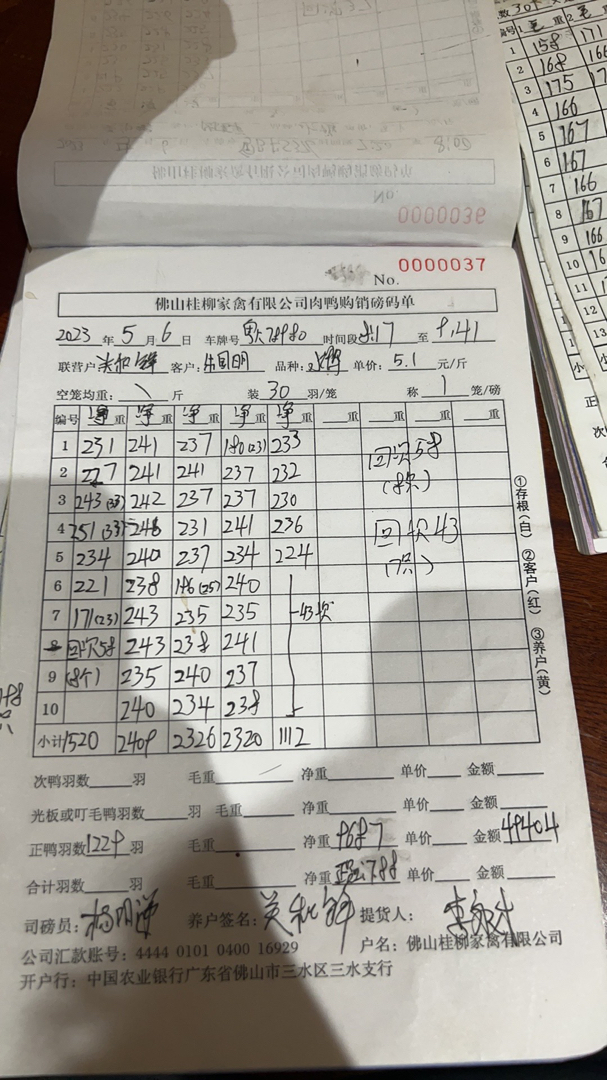 0000036
No. 0000037
佛山桂柳家禽有限公司肉鸭购销磅码单
2023 年 5 月 6 日 车牌号 时间段 至 9,41
联营户: 客户: 朱国明 品种: 单价: 5.1 元/斤
空笼均重: 斤 装 30 羽/笼 称 1 笼/磅
编号 净重 净重 净重 净重 净重 重 重 重 重
1 231 241 237 180(23) 233 回坎58
2 227 241 241 237 232 (8只)
3 243(33) 242 237 237 230
4 251(33) 248 231 241 236 回坎43
5 234 240 237 234 224 (7只)
6 221 238 186(25) 240
7 171(23) 243 235 235 43坎
8 回坎58 243 238 241
9 (8个) 235 240 237
10 240 234 238
小计 1520 2409 2326 2320 1112
①存根(白) ②客户(红) ③养户(黄)
次鸭羽数 羽 毛重 净重 单价 金额
光板或叮毛鸭羽数 羽 毛重 净重 单价 金额
正鸭羽数 1229 羽 毛重 净重 9687 单价 金额 49404
合计羽数 羽 毛重 净重 788 单价 金额
司磅员: 养户签名: 提货人:
公司汇款账号: 4444 0101 0400 16929 户名: 佛山桂柳家禽有限公司
开户行: 中国农业银行广东省佛山市三水区三水支行
数 30
编号 1 毛 重 2 毛
1 158 171
2 168 166
3 175 177
4 166
5 167
6 167
7 166
8 167
9 166
10 161
11
12
13
小